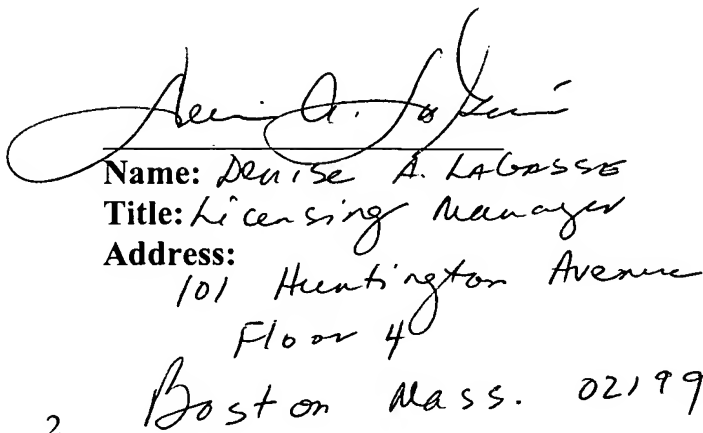 Denise A. LaGasse
Name: Denise A. LaGasse
Title: Licensing Manager
Address:
101 Huntington Avenue
Floor 4
Boston Mass. 02199
2